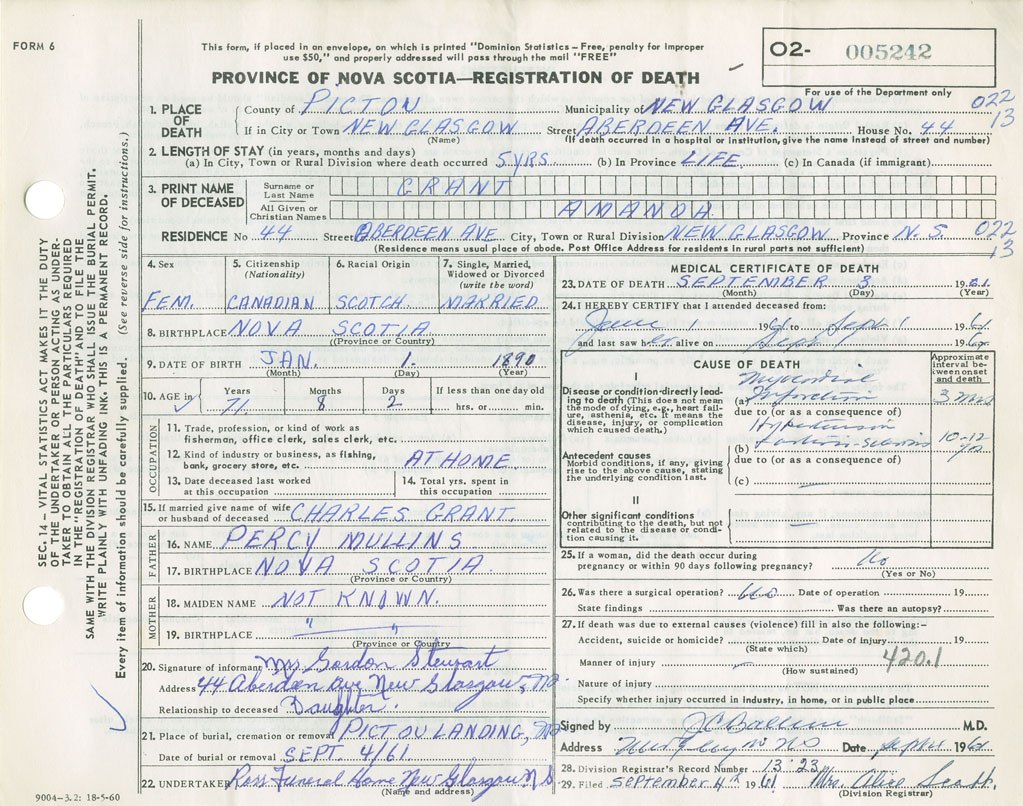 FORM 6
This form, if placed in an envelope, on which is printed "Dominion Statistics – Free, penalty for improper
use $50," and properly addressed will pass through the mail "FREE"
PROVINCE OF NOVA SCOTIA—REGISTRATION OF DEATH
O2- 005242
For use of the Department only
022
13
1. PLACE OF DEATH
County of PICTON Municipality of NEW GLASGOW
If in City or Town NEW GLASGOW Street ABERDEEN AVE. House No. 44
(Name) (If death occurred in a hospital or institution, give the name instead of street and number)
2. LENGTH OF STAY (in years, months and days)
(a) In City, Town or Rural Division where death occurred 5 YRS (b) In Province LIFE (c) In Canada (if immigrant)
3. PRINT NAME OF DECEASED
Surname or Last Name GRANT
All Given or Christian Names AMANDA
RESIDENCE No 44 Street ABERDEEN AVE City, Town or Rural Division NEW GLASGOW Province N.S. 022
13
(Residence means usual place of abode. Post Office Address for residents in rural parts not sufficient)
4. Sex FEM.
5. Citizenship (Nationality) CANADIAN
6. Racial Origin SCOTCH
7. Single, Married, Widowed or Divorced (write the word) MARRIED
8. BIRTHPLACE NOVA SCOTIA
(Province or Country)
9. DATE OF BIRTH JAN. 1. 1890
(Month) (Day) (Year)
10. AGE in Years 71 Months 8 Days 2 If less than one day old hrs. or min.
OCCUPATION
11. Trade, profession, or kind of work as
fisherman, office clerk, sales clerk, etc.
12. Kind of industry or business, as fishing,
bank, grocery store, etc. AT HOME
13. Date deceased last worked
at this occupation
14. Total yrs. spent in
this occupation
15. If married give name of wife
or husband of deceased CHARLES GRANT
FATHER
16. NAME PERCY MULLINS
17. BIRTHPLACE NOVA SCOTIA
(Province or Country)
MOTHER
18. MAIDEN NAME NOT KNOWN.
19. BIRTHPLACE " "
(Province or Country)
20. Signature of informant Mrs Gordon Stewart
Address 44 Aberdeen Ave New Glasgow, NS
Relationship to deceased Daughter
21. Place of burial, cremation or removal PICTOU LANDING, NS
Date of burial or removal SEPT. 4/61
22. UNDERTAKER Ross Funeral Home New Glasgow NS
(Name and address)
MEDICAL CERTIFICATE OF DEATH
23. DATE OF DEATH SEPTEMBER 3 1961
(Month) (Day) (Year)
24. I HEREBY CERTIFY that I attended deceased from:
June 1 1961 to Sept 1 1961
and last saw her alive on Sept 1 1961
CAUSE OF DEATH
Approximate interval between onset and death
I
Disease or condition directly leading to death (This does not mean the mode of dying, e.g., heart failure, asthenia, etc. It means the disease, injury, or complication which caused death.)
(a) Myocardial Infarction 3 mos
due to (or as a consequence of)
Hypertension
(b) 10-12 yrs
Antecedent causes
Morbid conditions, if any, giving rise to the above cause, stating the underlying condition last.
due to (or as a consequence of)
(c)
II
Other significant conditions
contributing to the death, but not related to the disease or condition causing it.
25. If a woman, did the death occur during
pregnancy or within 90 days following pregnancy? No
(Yes or No)
26. Was there a surgical operation? No Date of operation 19
State findings Was there an autopsy?
27. If death was due to external causes (violence) fill in also the following:-
Accident, suicide or homicide? Date of injury 19
(State which)
Manner of injury 420.1
(How sustained)
Nature of injury
Specify whether injury occurred in industry, in home, or in public place
Signed by M.D.
Address New Glasgow NS Date Sept 1961
28. Division Registrar's Record Number 1323
29. Filed September 4th 1961 Mrs. Alice Scott.
(Division Registrar)
SEC. 14 – VITAL STATISTICS ACT MAKES IT THE DUTY
OF THE UNDERTAKER OR PERSON ACTING AS UNDER-
TAKER TO OBTAIN ALL THE PARTICULARS REQUIRED
IN THE "REGISTRATION OF DEATH" AND TO FILE THE
SAME WITH THE DIVISION REGISTRAR WHO SHALL ISSUE THE BURIAL PERMIT.
WRITE PLAINLY WITH UNFADING INK. THIS IS A PERMANENT RECORD.
Every item of information should be carefully supplied. (See reverse side for instructions.)
9004–3.2: 18-5-60